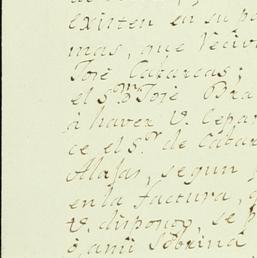 existen en su po
mas, que Vecivi
José Cabarcas;
el S.r José Bra
à haver V. Cepar
ce el S.r de Cabar
Alajas, segun
en la factura,
V. dispongo, se p
ò à mi Sobrina